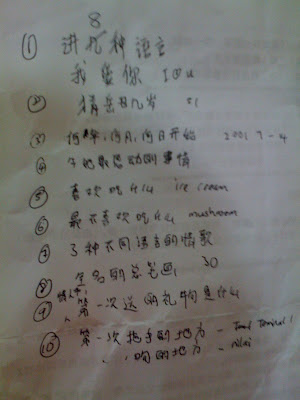 8
① 讲几种语言
我爱你 I ❤ u
② 猜岳母几岁 51
③ 何年,何月,何日开始 2001 7-4
④ 令她最感动的事情
⑤ 喜欢吃什么 ice cream
⑥ 最不喜欢吃什么 mushroom
⑦ 3种不同语言的情歌
⑧ 全名的总笔画 30
⑨ 第一次送的礼物是什么
⑩ 第一次拖手的地方 -
" " 吻的地方 - Nilai